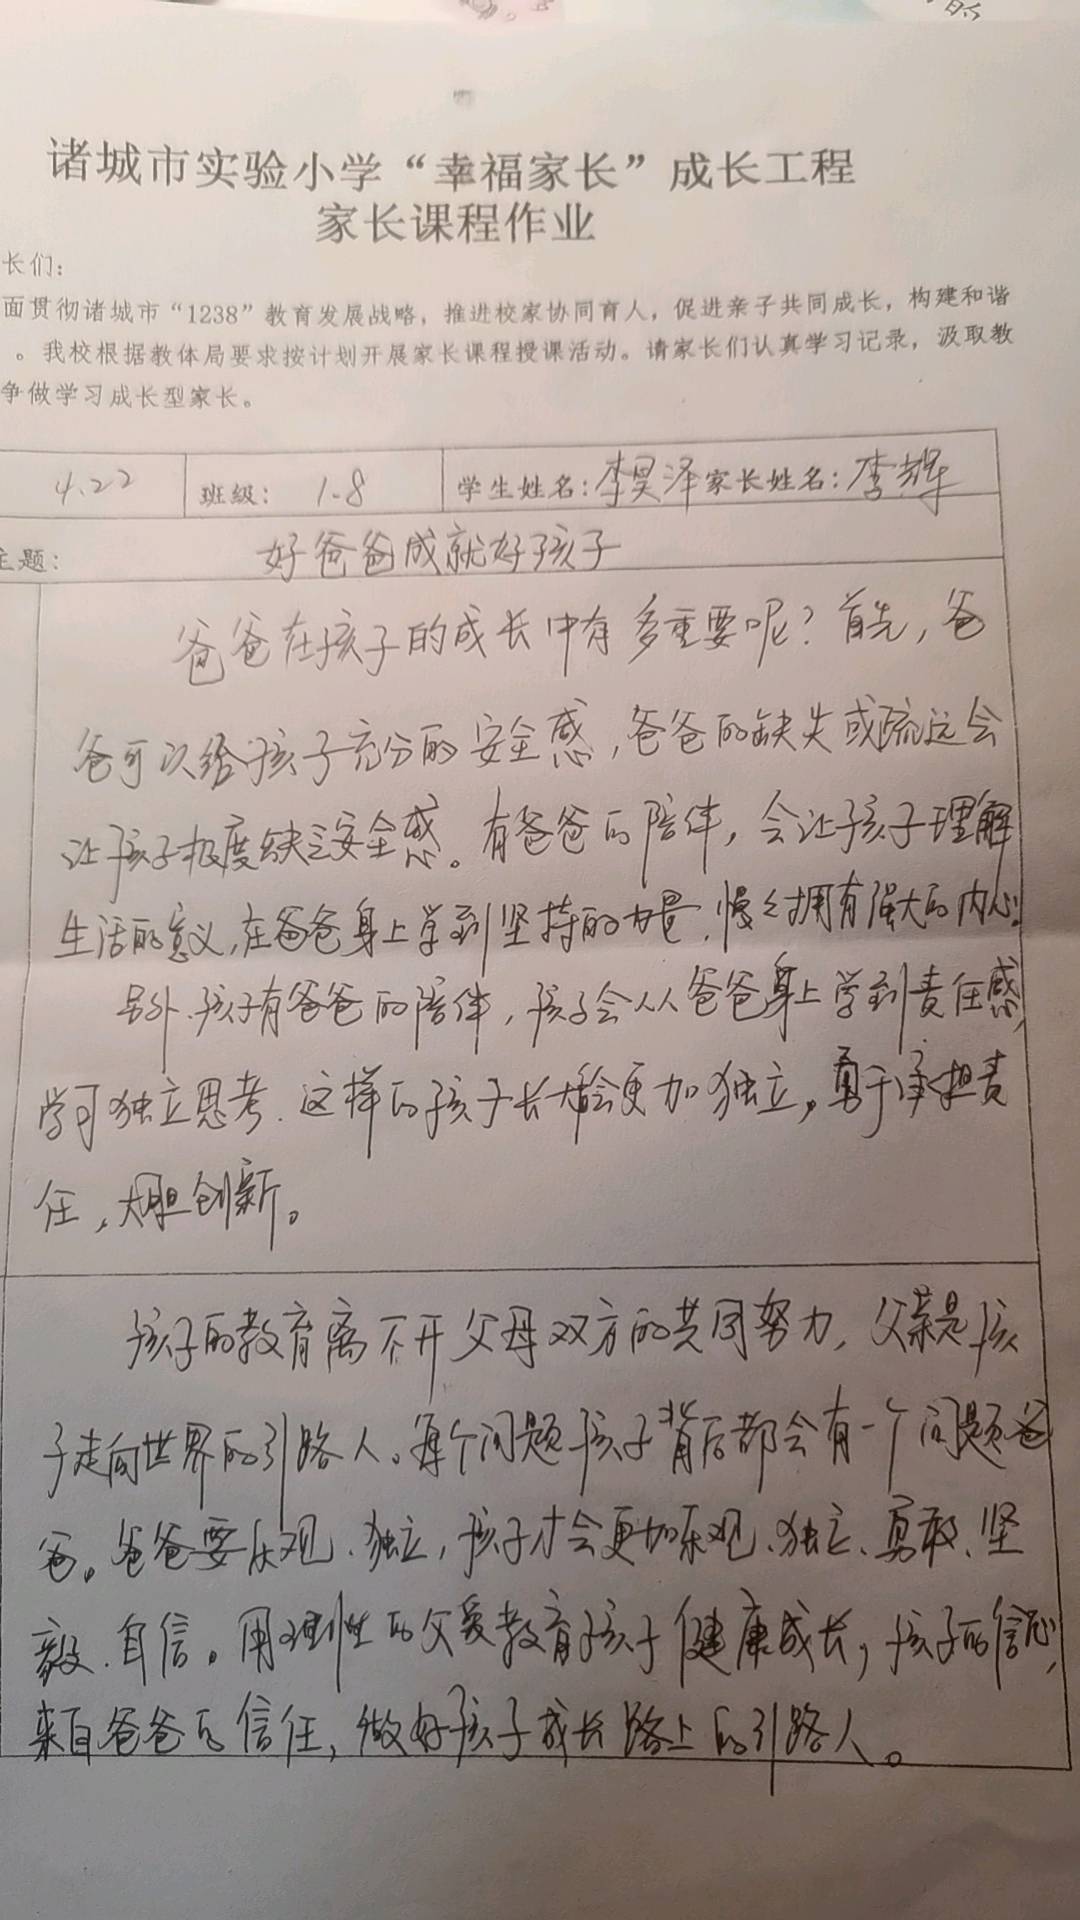 诸城市实验小学“幸福家长”成长工程
家长课程作业
长们：
面贯彻诸城市“1238”教育发展战略，推进校家协同育人，促进亲子共同成长，构建和谐
。我校根据教体局要求按计划开展家长课程授课活动。请家长们认真学习记录，汲取教
争做学习成长型家长。
4.22 班级： 1.8 学生姓名：李昊泽 家长姓名：李辉
主题： 好爸爸成就好孩子
爸爸在孩子的成长中有多重要呢？首先，爸
爸可以给孩子充分的安全感，爸爸的缺失或疏远会
让孩子极度缺乏安全感。有爸爸的陪伴，会让孩子理解
生活的意义，在爸爸身上学到坚持的力量，慢々拥有强大的内心。
另外，孩子有爸爸的陪伴，孩子会从爸爸身上学到责任感，
学习独立思考、这样的孩子长大会更加独立，勇于承担责
任，大胆创新。
孩子的教育离不开父母双方的共同努力，父亲是孩
子走向世界的引路人。每个问题孩子背后都会有一个问题爸
爸。爸爸要乐观、独立，孩子才会更加乐观、独立、勇敢、坚
毅、自信。用理性的父爱教育孩子健康成长，孩子的信心，
来自爸爸的信任，做好孩子成长路上的引路人。